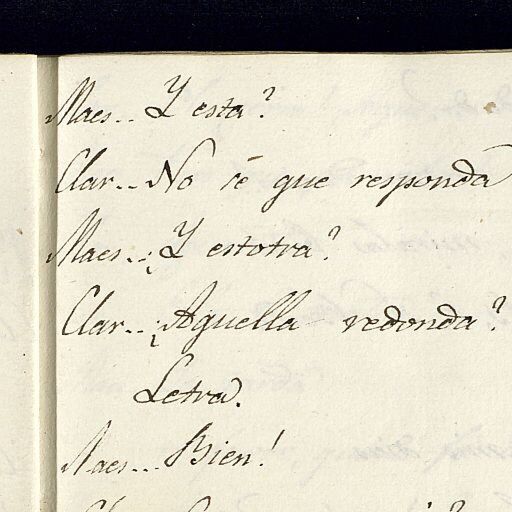 Maes.. Y esta?
Clar.. No sé que responda
Maes.. ¿Y estotra?
Clar.. ¿Aquella redonda?
Letra.
Maes... Bien!